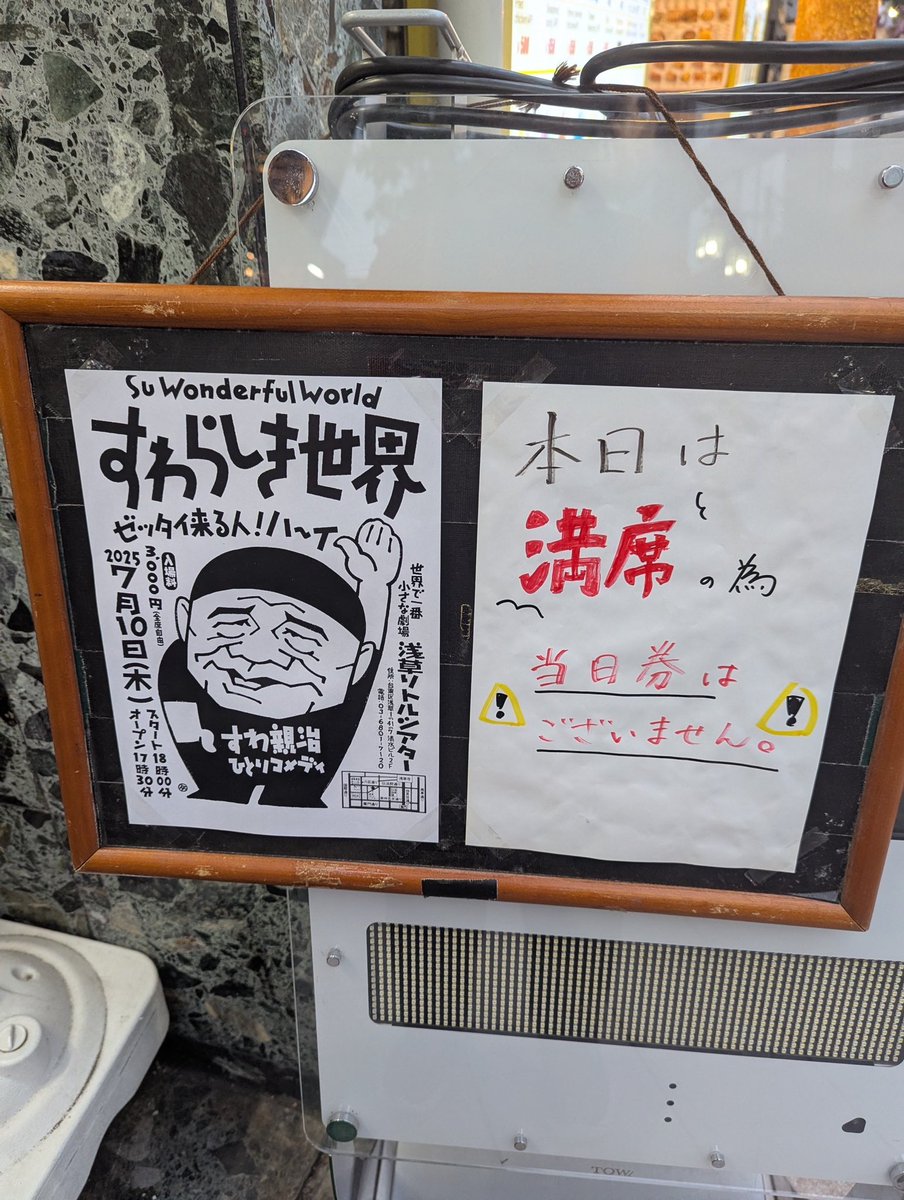 Su Wonderful World
すわらしき世界
ゼッタイ来る人!ハ〜イ
世界で一番
小さな劇場
浅草リトルシアター
入場料
3,000円(全席自由)
2025
7月10日(木)
スタート18時00分
オープン17時30分
すわ親治
ひとりコメディ
本日は
満席の為
当日券は
ございません。
TOW